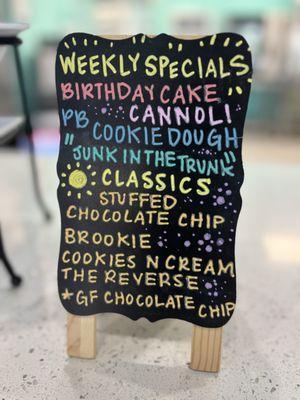 WEEKLY SPECIALS
BIRTHDAY CAKE
CANNOLI
PB COOKIE DOUGH
"JUNK IN THE TRUNK"
CLASSICS
STUFFED
CHOCOLATE CHIP
BROOKIE
COOKIES N CREAM
THE REVERSE
*GF CHOCOLATE CHIP